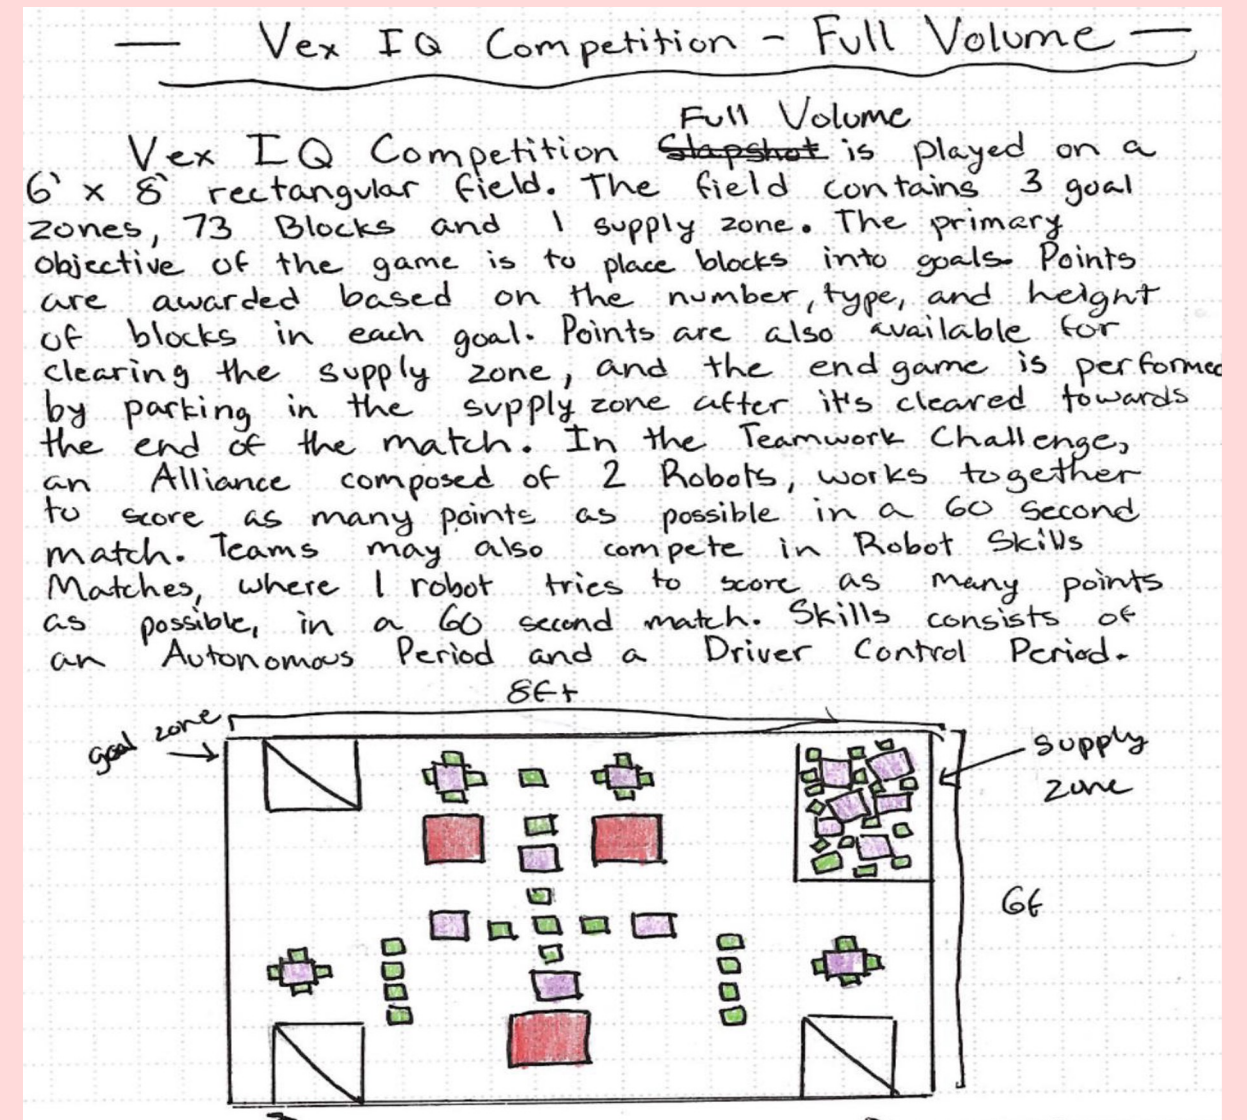 — Vex IQ Competition - Full Volume —
Full Volume
Vex IQ Competition Slapshot is played on a
6' x 8' rectangular field. The field contains 3 goal
zones, 73 Blocks and 1 supply zone. The primary
objective of the game is to place blocks into goals. Points
are awarded based on the number, type, and height
of blocks in each goal. Points are also available for
clearing the supply zone, and the end game is performed
by parking in the supply zone after it's cleared towards
the end of the match. In the Teamwork Challenge,
an Alliance composed of 2 Robots, works together
to score as many points as possible in a 60 second
match. Teams may also compete in Robot Skills
Matches, where 1 robot tries to score as many points
as possible, in a 60 second match. Skills consists of
an Autonomous Period and a Driver Control Period.
8ft
goal zone
supply
zone
6f